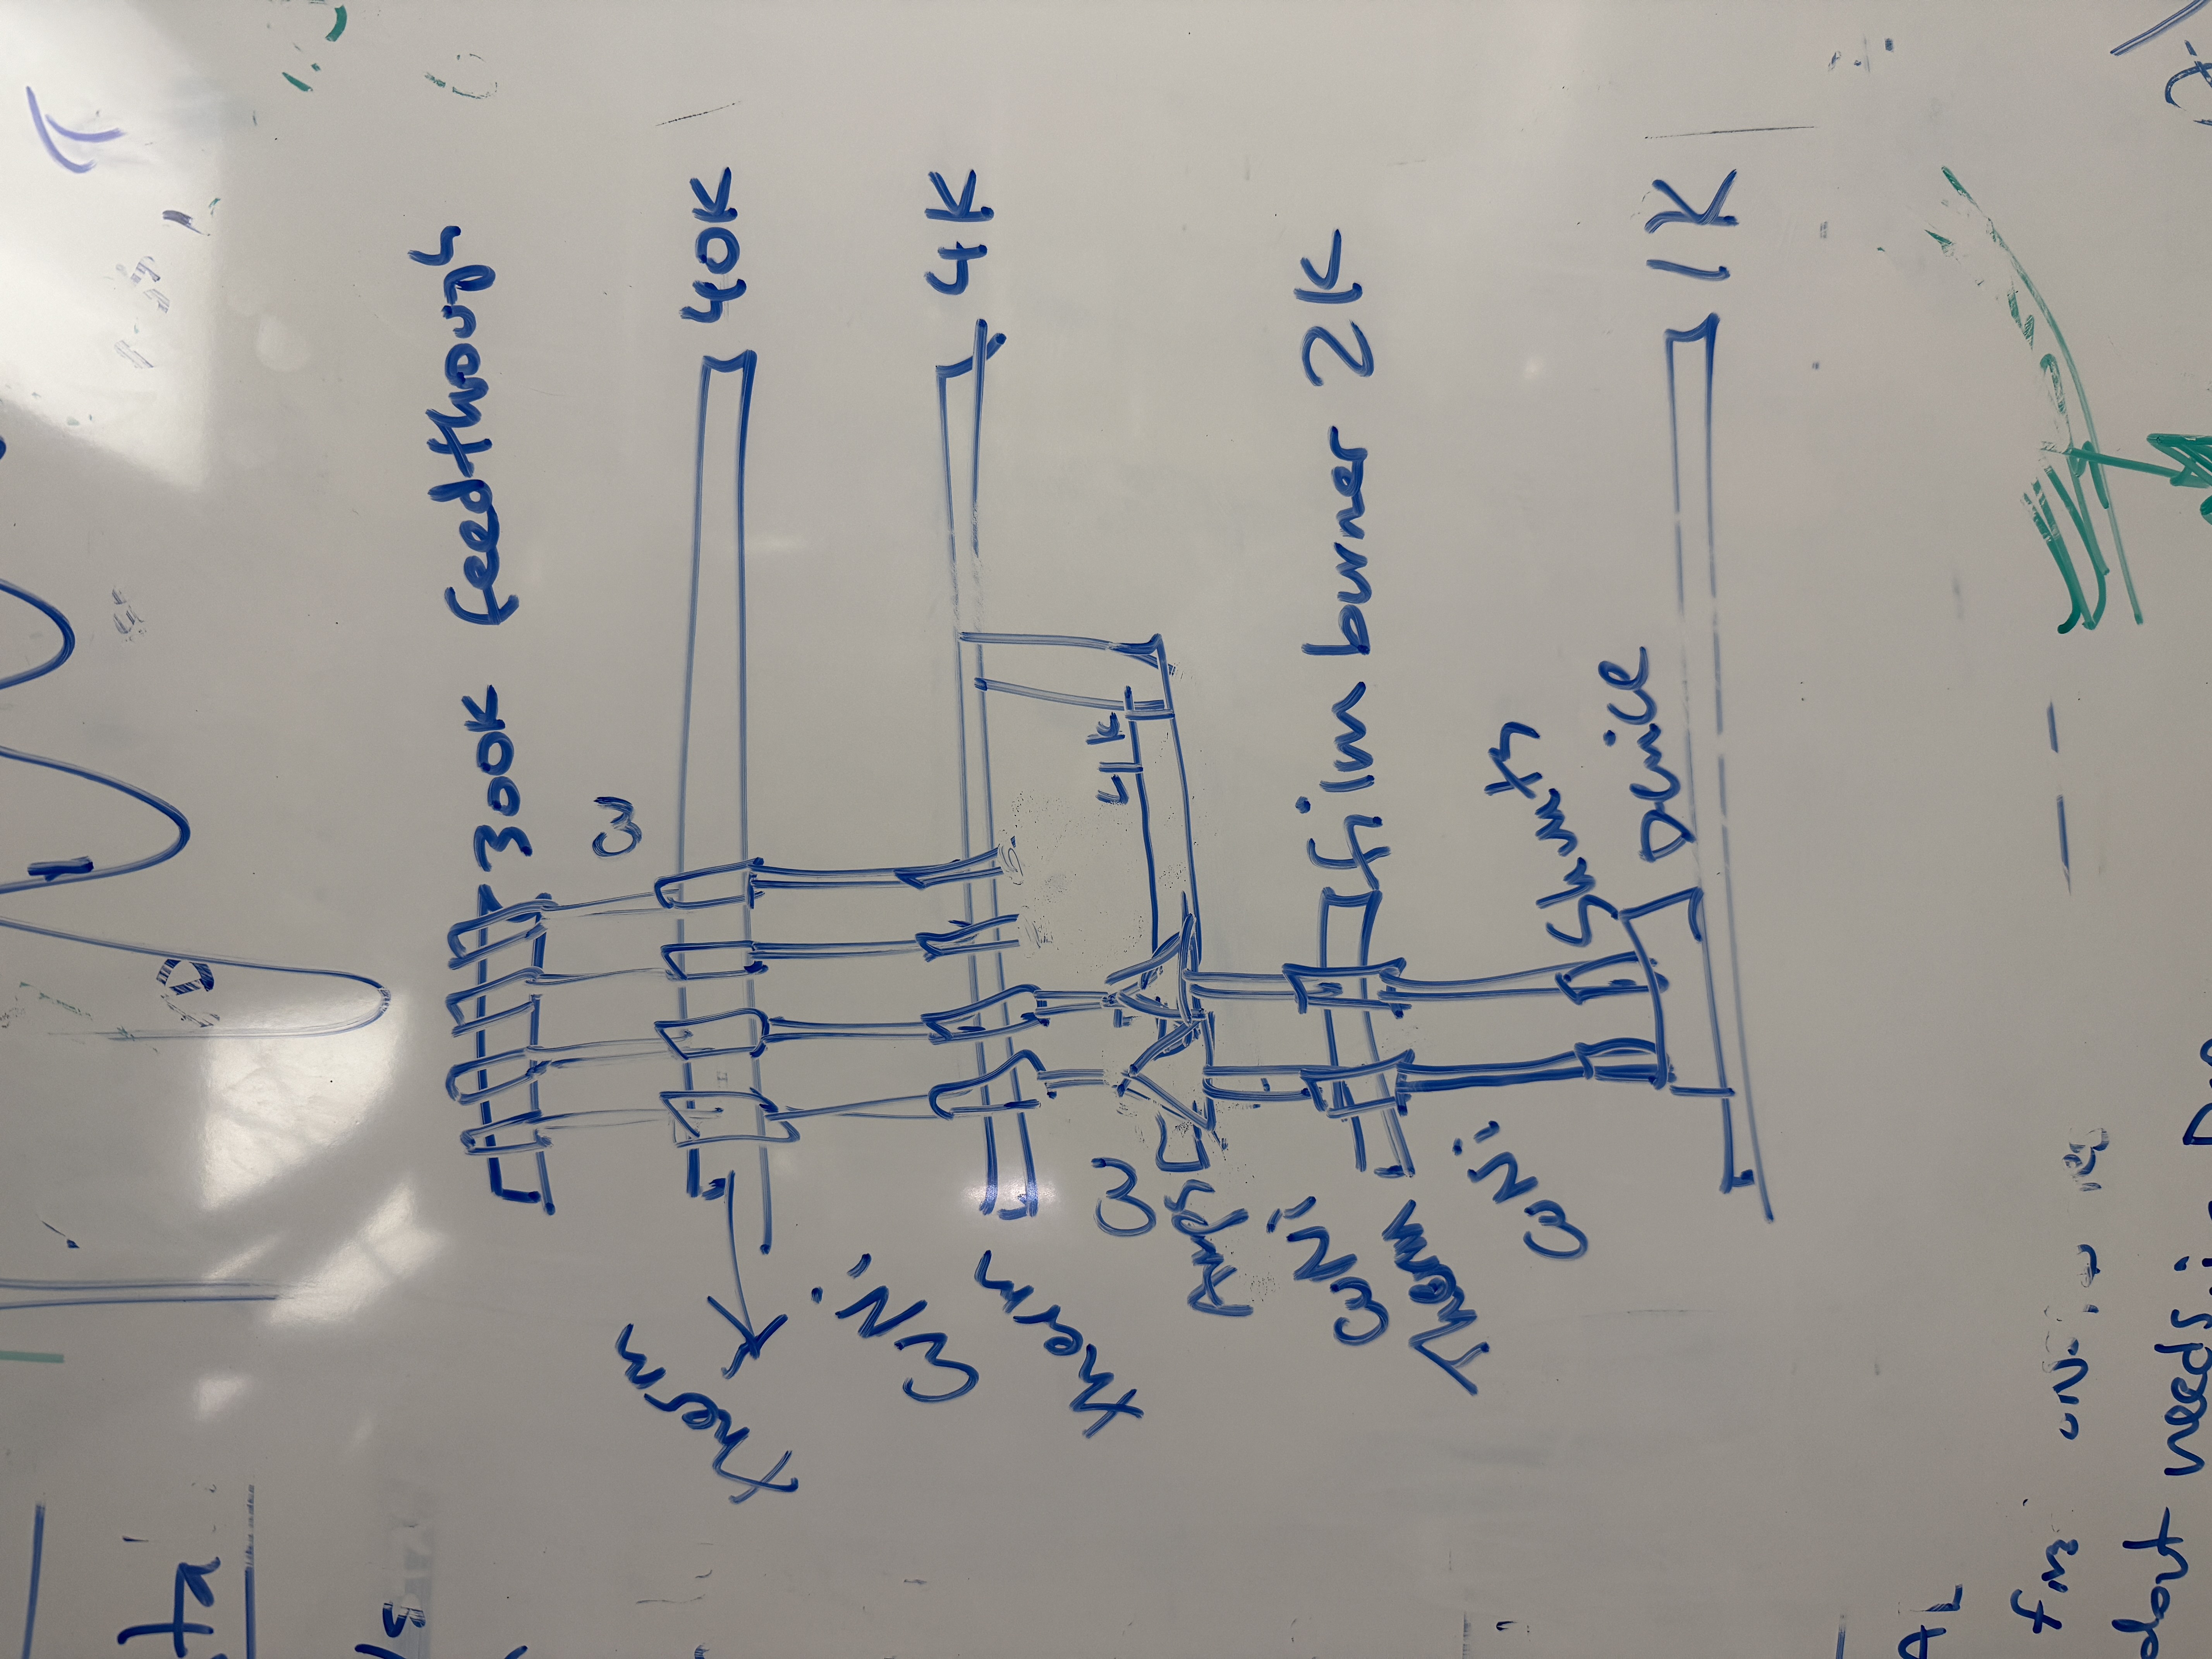 300K feedthrough
Cu
40K
therm
CuNi
4K
therm
4K
Cu
Amps
CuNi
film burner 2K
Therm
CuNi
Shunts
Device
1K
needs: